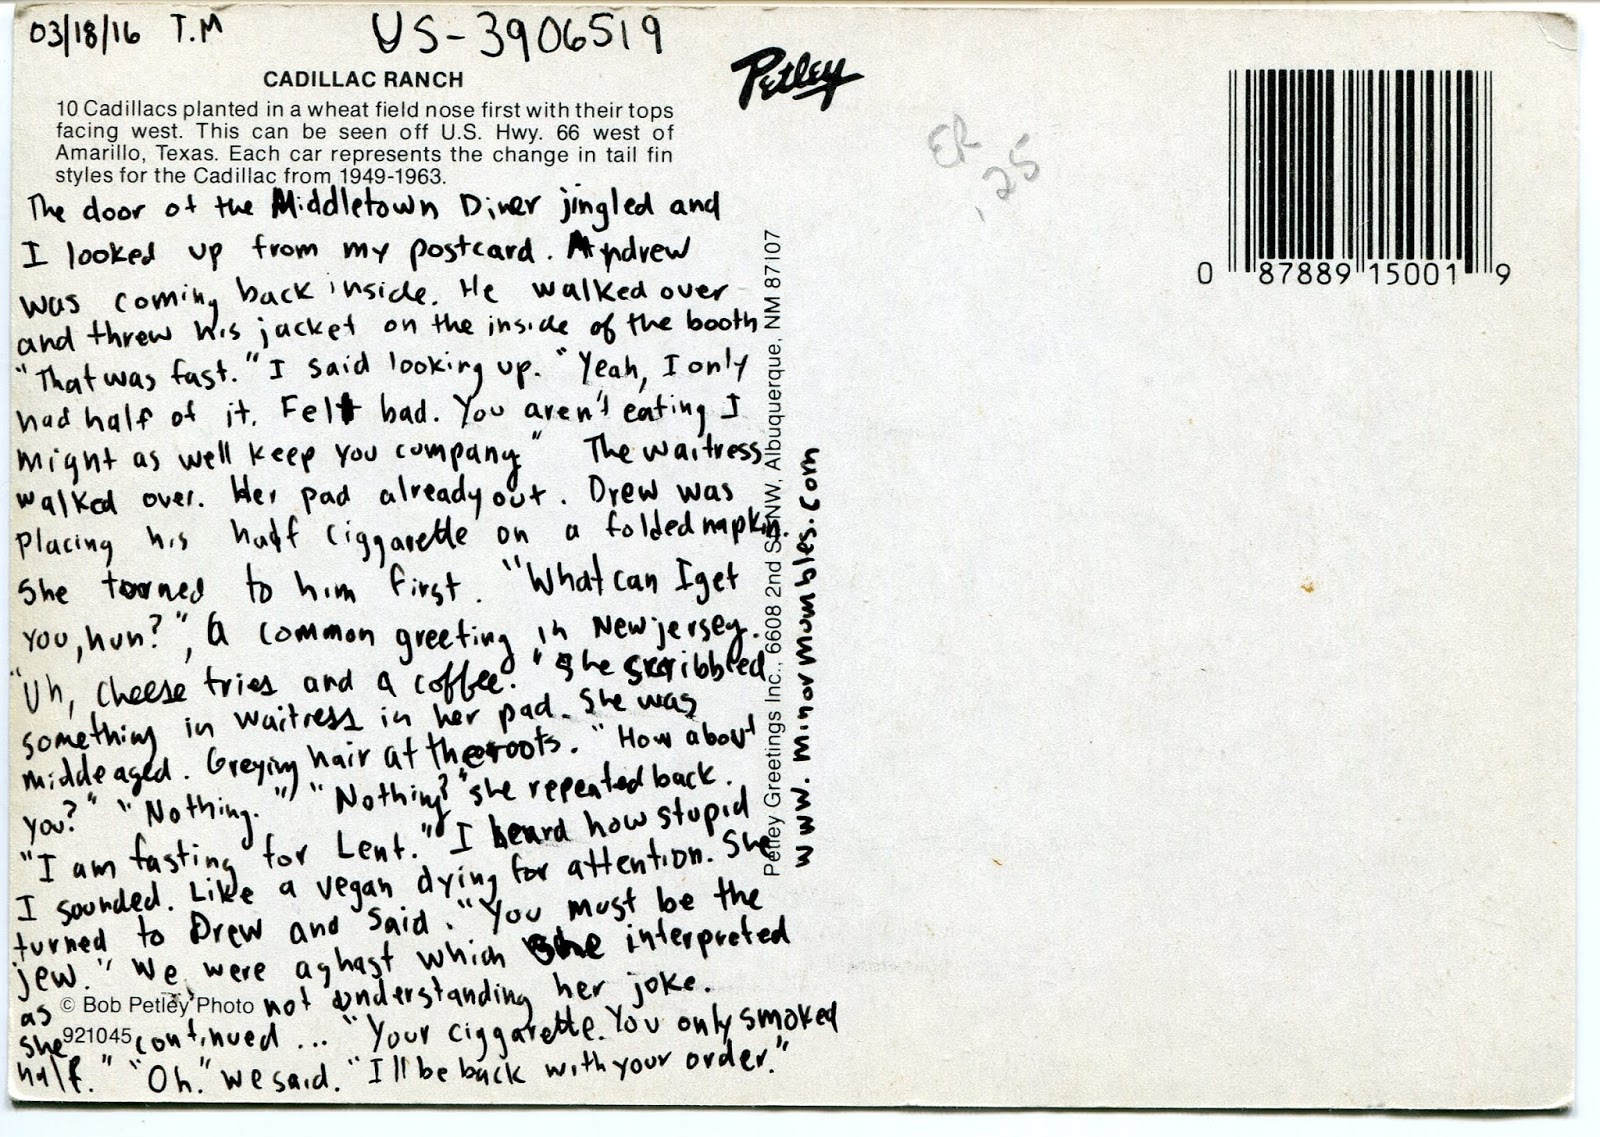 03/18/16 T.M US-3906519
CADILLAC RANCH
10 Cadillacs planted in a wheat field nose first with their tops
facing west. This can be seen off U.S. Hwy. 66 west of
Amarillo, Texas. Each car represents the change in tail fin
styles for the Cadillac from 1949-1963.
The door of the Middletown Diner jingled and
I looked up from my postcard. Andrew
was coming back inside. He walked over
and threw his jacket on the inside of the booth
"That was fast." I said looking up. "Yeah, I only
had half of it. Felt bad. You aren't eating I
might as well keep you company" The waitress
walked over. Her pad already out. Drew was
placing his half ciggarette on a folded napkin.
She toorned to him first. "What can I get
you, hun?", a common greeting in New jersey.
"Uh, cheese fries and a coffee." She scribbled
something in waitress in her pad. She was
middle aged. Greying hair at the roots. "How about
you?" "Nothing." "Nothing?" she repeated back.
"I am fasting for Lent." I heard how stupid
I sounded. Like a vegan dying for attention. She
turned to Drew and said. "You must be the
jew." We were aghast which she interpreted
as not understanding her joke.
she continued ... "Your ciggarette. You only smoked
half." "Oh." we said. "I'll be back with your order."
© Bob Petley Photo
921045
Petley
Petley Greetings Inc., 6608 2nd St NW, Albuquerque, NM 87107
www.minormumbles.com
.25
0 87889 15001 9